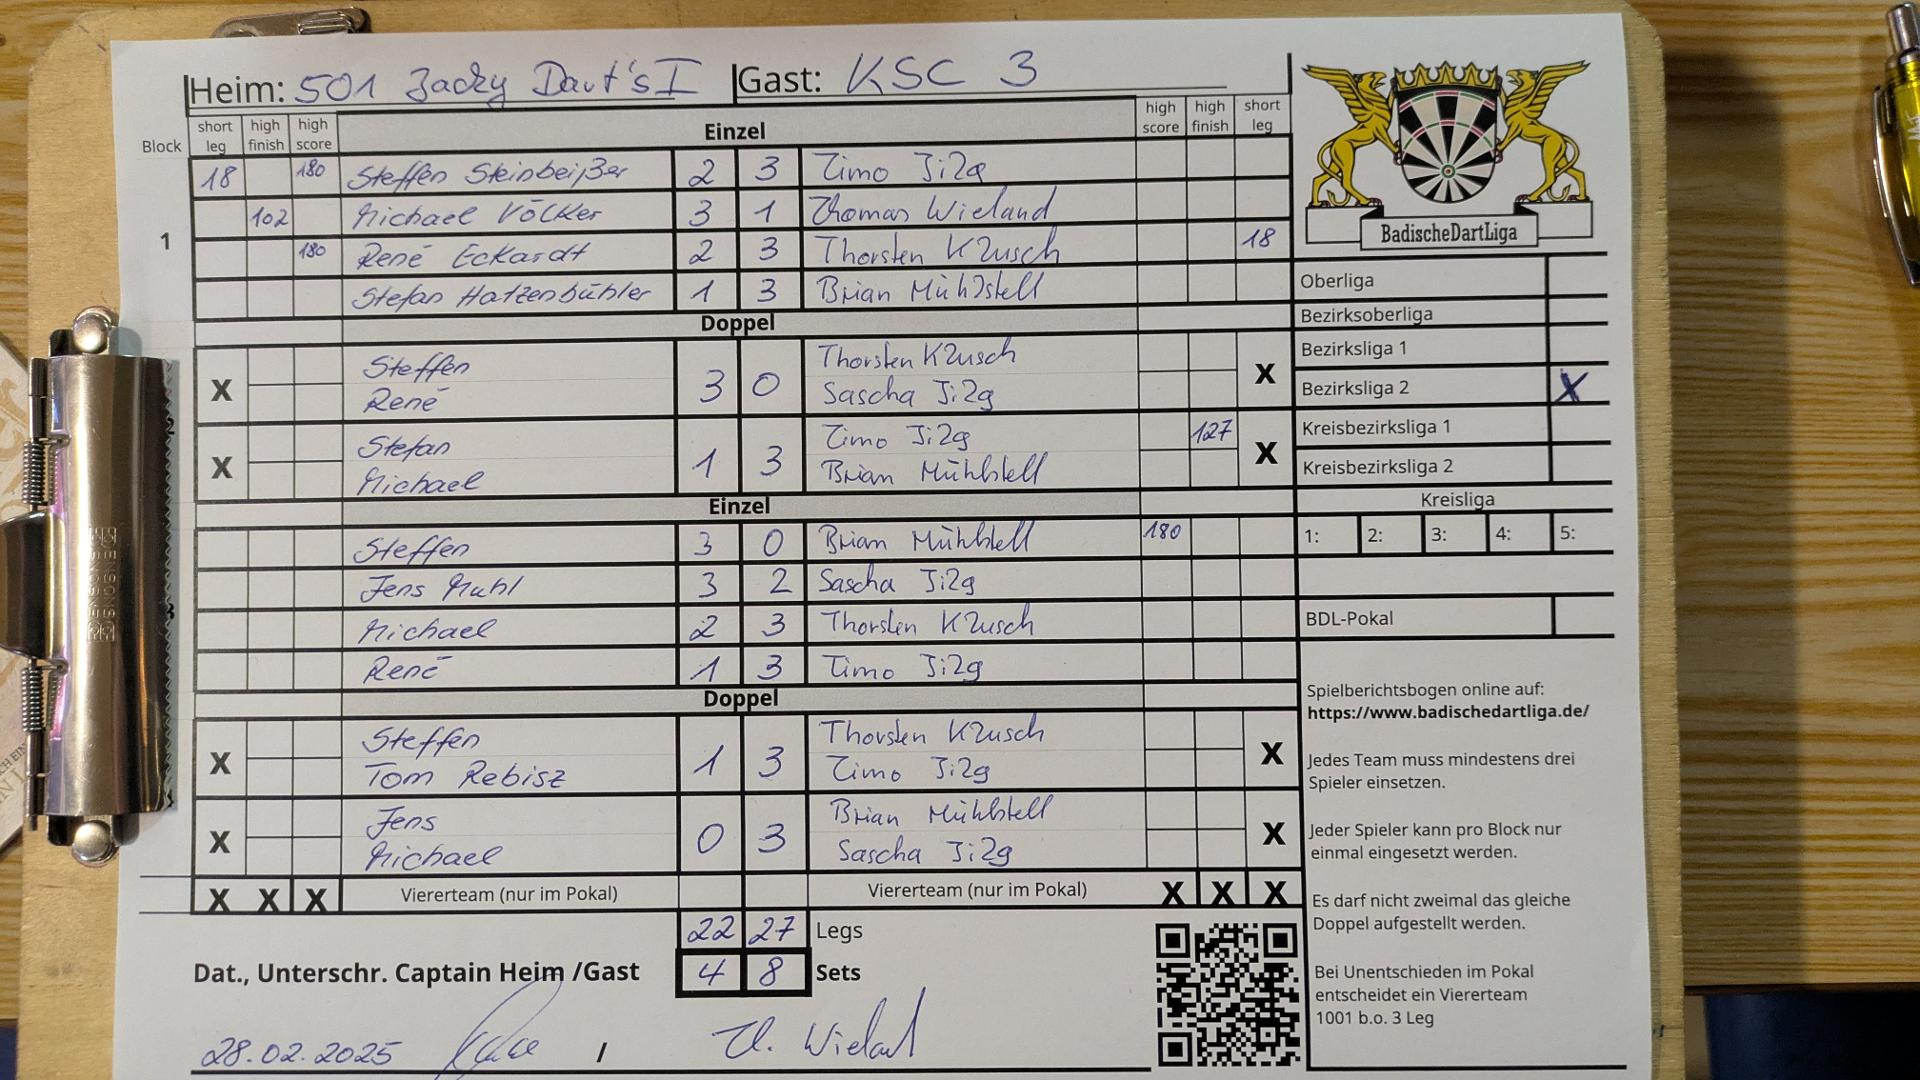 Heim: 501 Jacky Dart's I Gast: KSC 3
Block short leg high finish high score Einzel high score high finish short leg
18 180 Steffen Steinbeißer 2 3 Timo Jilg
102 Michael Völker 3 1 Thomas Wieland
1
180 René Eckardt 2 3 Thorsten Klusch 18
Stefan Hatzenbühler 1 3 Brian Mühlstell
Doppel
Steffen Thorsten Klusch
X 3 0 X
René Sascha Jilg
Stefan Timo Jilg 127
X 1 3 X
Michael Brian Mühlstell
Einzel
Steffen 3 0 Brian Mühlstell 180
Jens Muhl 3 2 Sascha Jilg
Michael 2 3 Thorsten Klusch
René 1 3 Timo Jilg
Doppel
Steffen Thorsten Klusch
X 1 3 X
Tom Rebisz Timo Jilg
Jens Brian Mühlstell
X 0 3 X
Michael Sascha Jilg
X X X Viererteam (nur im Pokal) Viererteam (nur im Pokal) X X X
22 27 Legs
Dat., Unterschr. Captain Heim /Gast 4 8 Sets
28.02.2025 / Th. Wieland
BadischeDartLiga
Oberliga
Bezirksoberliga
Bezirksliga 1
Bezirksliga 2 X
Kreisbezirksliga 1
Kreisbezirksliga 2
Kreisliga
1: 2: 3: 4: 5:
BDL-Pokal
Spielberichtsbogen online auf:
https://www.badischedartliga.de/
Jedes Team muss mindestens drei
Spieler einsetzen.
Jeder Spieler kann pro Block nur
einmal eingesetzt werden.
Es darf nicht zweimal das gleiche
Doppel aufgestellt werden.
Bei Unentschieden im Pokal
entscheidet ein Viererteam
1001 b.o. 3 Leg